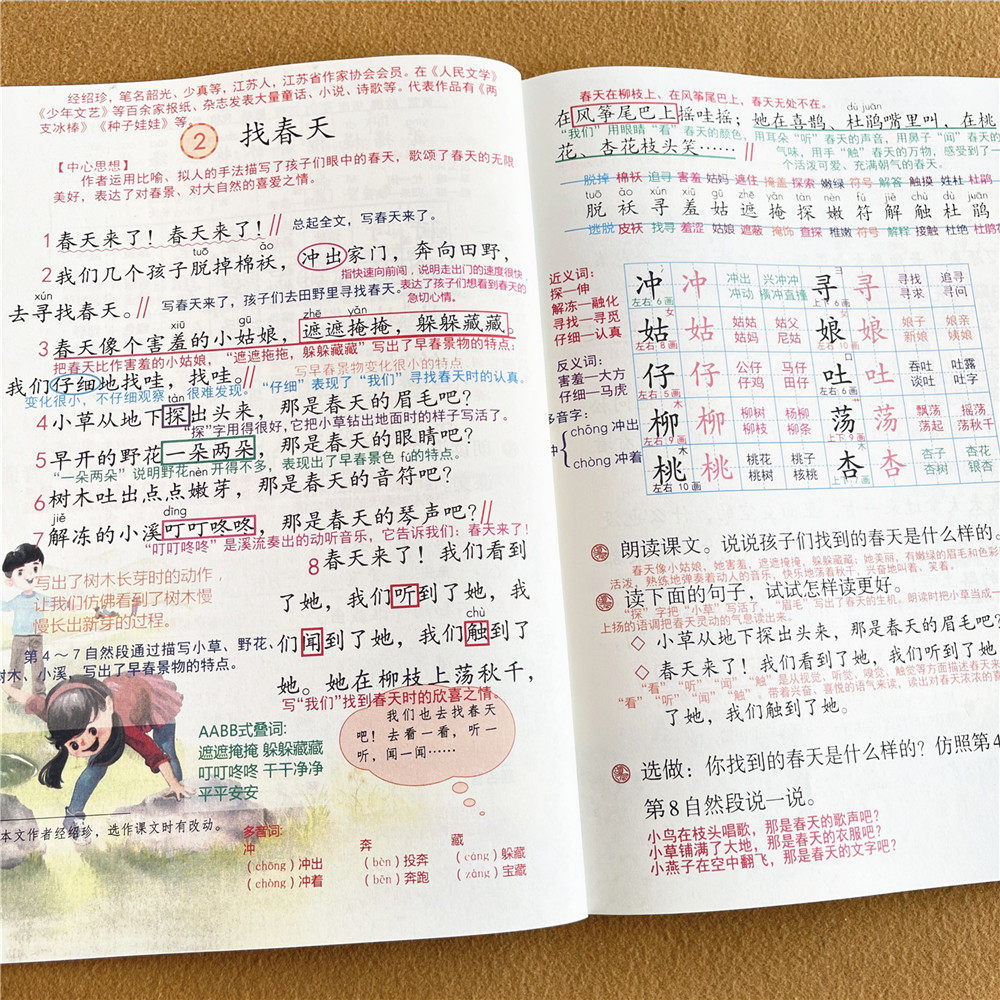 经绍珍，笔名韶光、少真等，江苏人，江苏省作家协会会员。在《人民文学》
《少年文艺》等百余家报纸、杂志发表大量童话、小说、诗歌等。代表作品有《两
支冰棒》《种子娃娃》等。
2 找春天
【中心思想】
作者运用比喻、拟人的手法描写了孩子们眼中的春天，歌颂了春天的无限
美好，表达了对春景、对大自然的喜爱之情。
1 春天来了！春天来了！// 总起全文，写春天来了。
tuō ǎo
2 我们几个孩子脱掉棉袄，冲出家门，奔向田野，
指快速向前闯，说明走出门的速度很快，
xún
去寻找春天。// 写春天来了，孩子们去田野里寻找春天。
表达了孩子们想看到春天的
急切心情。
xiū gū zhē yǎn
3 春天像个害羞的小姑娘，遮遮掩掩，躲躲藏藏。
把春天比作害羞的小姑娘，“遮遮掩掩，躲躲藏藏”写出了早春景物的特点：
写早春景物变化很小的特点
我们仔细地找哇，找哇。
变化很小，不仔细观察，很难发现。“仔细”表现了“我们”寻找春天时的认真。
tàn
4 小草从地下探出头来，那是春天的眉毛吧？
“探”字用得很好，它把小草钻出地面时的样子写活了。
5 早开的野花一朵两朵，那是春天的眼睛吧？
“一朵两朵”说明野花开得不多，表现出了早春景色的特点。
nèn fú
6 树木吐出点点嫩芽，那是春天的音符吧？
jiě dīng
7 解冻的小溪叮叮咚咚，那是春天的琴声吧？//
“叮叮咚咚”是溪流奏出的动听音乐，它告诉我们：春天来了！
写出了树木长芽时的动作，
让我们仿佛看到了树木慢
慢长出新芽的过程。
第4～7自然段通过描写小草、野花、
树木、小溪，写出了早春景物的特点。
8 春天来了！我们看到
了她，我们听到了她，我
chù
们闻到了她，我们触到了
她。她在柳枝上荡秋千，
写“我们”找到春天时的欣喜之情。
AABB式叠词：
遮遮掩掩 躲躲藏藏
叮叮咚咚 干干净净
平平安安
我们也去找春天
吧！去看一看，听一
听，闻一闻……
本文作者经绍珍，选作课文时有改动。
多音词：
冲 奔 藏
（chōng）冲出 （bèn）投奔 （cáng）躲藏
（chòng）冲着 （bēn）奔跑 （zàng）宝藏
春天在柳枝上，在风筝尾巴上，春天无处不在。
dù juān
在风筝尾巴上摇哇摇；她在喜鹊、杜鹃嘴里叫，在桃
“我们”用眼睛“看”春天的颜色，用耳朵“听”春天的声音，用鼻子“闻”春天的
花、杏花枝头笑……//
气味，用手“触”春天的万物，感受到了一
个活泼可爱、充满朝气的春天。
脱掉 棉袄 追寻 害羞 姑妈 遮住 掩盖 探索 嫩绿 符号 解答 触摸 姓杜 杜鹃
tuō ǎo xún xiū gū zhē yǎn tàn nèn fú jiě chù dù juān
脱 袄 寻 羞 姑 遮 掩 探 嫩 符 解 触 杜 鹃
逃脱 皮袄 找寻 羞涩 姑娘 遮蔽 掩饰 查探 稚嫩 符号 解释 接触 杜绝 杜鹃花
近义词：
探—伸
解冻—融化
寻找—寻觅
仔细—认真
反义词：
害羞—大方
仔细—马虎
多音字：
冲
chōng 冲出
chòng 冲着
冲 冲 冲出 兴冲冲 寻 寻 寻找 追寻
左右 6画 冲动 横冲直撞 上下 6画 寻求 寻问
姑 姑 姑姑 姑父 娘 娘 娘子 娘亲
左右 8画 姑妈 尼姑 新娘 姨娘
仔 仔 公仔 马仔 吐 吐 吞吐 吐露
左右 5画 仔鸡 田仔 左右 6画 谈吐 吐字
柳 柳 柳树 杨柳 荡 荡 飘荡 摇荡
左右 9画 柳枝 柳条 上下 9画 荡起 荡秋千
桃 桃 桃花 桃子 杏 杏 杏子 杏花
左右 10画 桃树 核桃 杏树 银杏
朗读课文。说说孩子们找到的春天是什么样的。
春天像小姑娘，她害羞，遮遮掩掩，躲躲藏藏；她美丽，有嫩绿的眉毛和色彩
活泼，熟练地弹奏着动人的音乐，快乐地荡着秋千，兴奋地叫着、笑着。
读下面的句子，试试怎样读更好。
“探”字把“小草”写活了，“眉毛”写出了春天的生机，朗读时把小草当成一
上扬的语调把春天灵动的气息读出来。
◇ 小草从地下探出头来，那是春天的眉毛吧？
◇ 春天来了！我们看到了她，我们听到了她
“看”“听”“闻”“触”是从视觉，听觉，嗅觉，触觉等方面描述春天来
“看”“听”“闻”“触”。带着兴奋、喜悦的语气来读，读出对春天浓浓的喜
了她，我们触到了她。
选做：你找到的春天是什么样的？仿照第4
第8自然段说一说。
小鸟在枝头唱歌，那是春天的歌声吧？
小草铺满了大地，那是春天的衣服吧？
小燕子在空中翻飞，那是春天的文字吧？